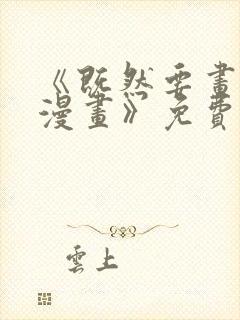 《既然要畫
漫畫》免費
雲上